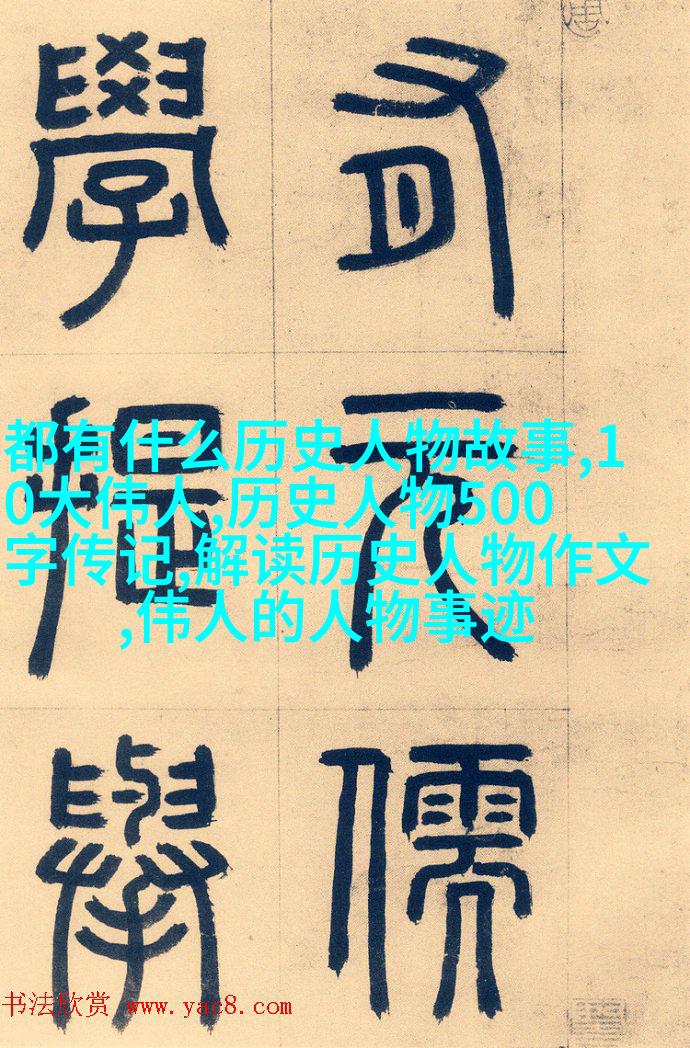 有元儒
學提舉
都有什么历史人物故事,1
0大伟人,历史人物500
字传记,解读历史人物作文
,伟人的人物事迹
书法欣赏 www.yac8.com